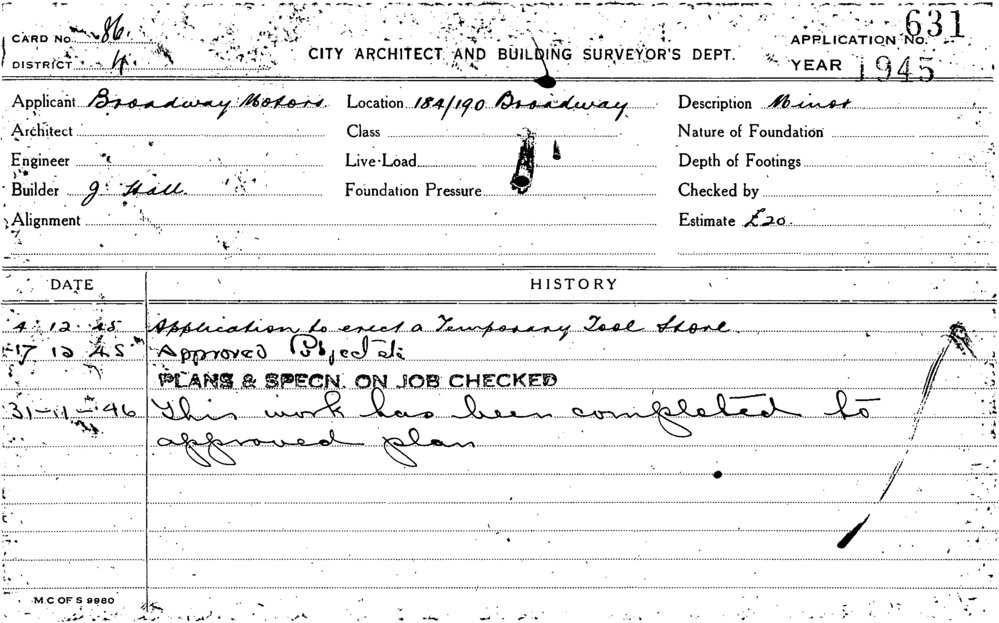 CARD No. 86.
APPLICATION No. 631
DISTRICT 4.
CITY ARCHITECT AND BUILDING SURVEYOR'S DEPT.
YEAR 1945
Applicant Broadway Motors. Location 184/190 Broadway Description Minor
Architect Class Nature of Foundation
Engineer Live-Load Depth of Footings
Builder J. Hall. Foundation Pressure Checked by
Alignment Estimate £20.
DATE HISTORY
4. 12. 45 Application to erect a Temporary Tool Store.
17 12 45 Approved Subject to
PLANS & SPECN. ON JOB CHECKED
31-11-46 This work has been completed to
approved plan
M C OF S 9980